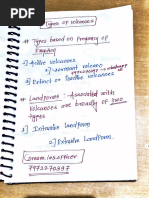 Types of volcanoes
# Types based on Frequency of
Eruption
1] Active volcanoes
2] Dormant volcano
3] Extinct or
volcanoes
# Landforms: Associated with
volcanoes are broadly of two
types
1] Intrusive landform
2] Extrusive Landform
7972270897